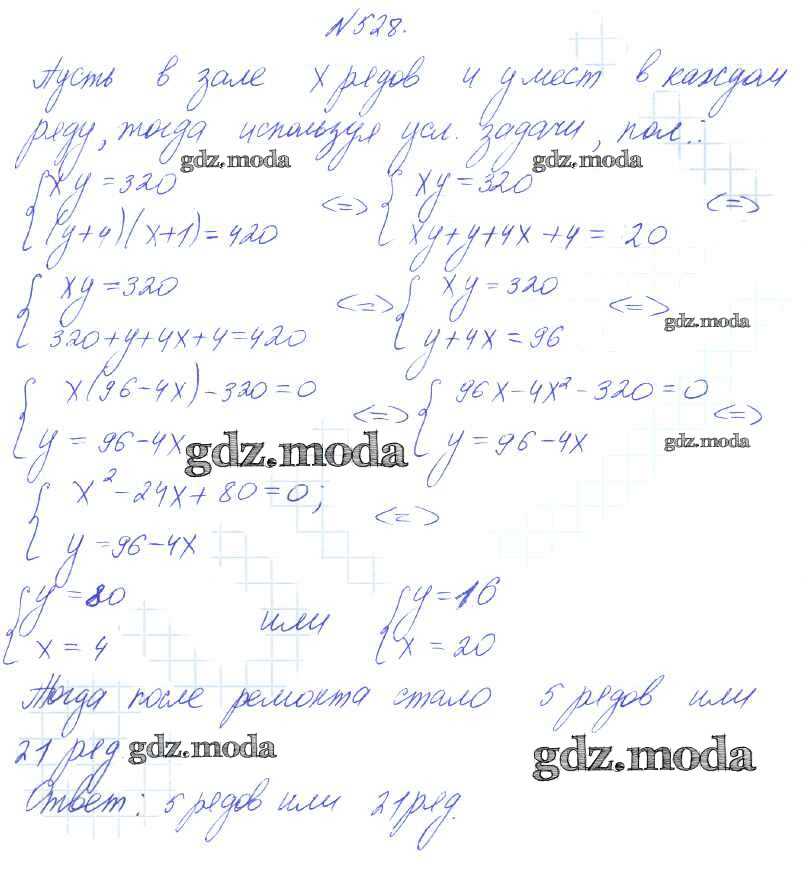 №528.
Пусть в зале x рядов и y мест в каждом
ряду, тогда используя усл. задачи, пол.:
gdz.moda gdz.moda
{ xy = 320 <=> { xy = 320 <=>
(y+4)(x+1) = 420 xy+y+4x+4 = 20
{ xy = 320 <=> { xy = 320 <=>
320+y+4x+4=420 y+4x = 96
gdz.moda
{ x(96-4x)-320=0 <=> { 96x-4x²-320=0 <=>
y = 96-4x y = 96-4x
gdz.moda gdz.moda
{ x²-24x+80=0; <=>
y = 96-4x
{ y = 80 или { y = 16
x = 4 x = 20
Тогда после ремонта стало 5 рядов или
21 ряд
gdz.moda gdz.moda
Ответ: 5 рядов или 21 ряд.